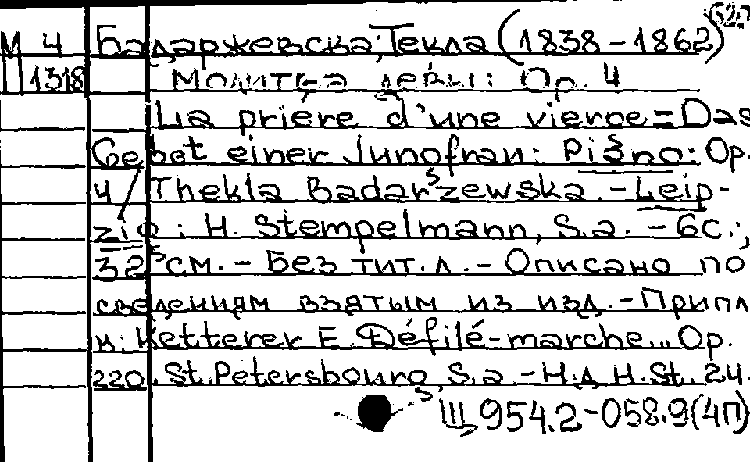 М 4 Бадаржевска, Текла (1838-1862)
1318 Молитва девы: Op. 4
La prière d'une vierge = Das
Gebet einer Jungfrau: Piano: Op.
4 / Thekla Badarzewska. - Leip-
zig: H. Stempelmann, S.a. - 6с.;
32 см. - Без тит. л. - Описано по
сведениям взятым из изд. - Припл
к: Ketterer E. Défilé-marche... Op.
220. St. Petersbourg, S.a. - Н.д. H.St. 24.
Щ 954.2-058.9(4П)